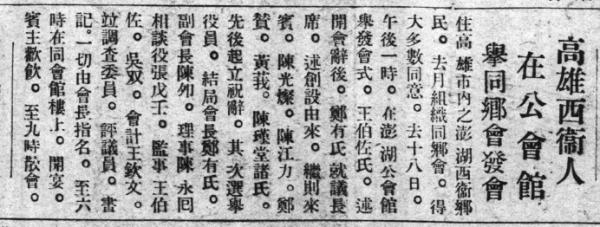 高雄西衞人
在公會館
舉同鄉會發會
住高雄市內之澎湖西衞鄉
民。去月組織同鄉會。得
大多數同意。去十八日。
午後一時。在澎湖公會館
舉發會式。王伯佐氏。述
開會辭後。鄭有氏就議長
席。述創設由來。繼則來
賓。陳光燦。陳江力。鄭
賛。黃莪。陳瑾堂諸氏。
先後起立祝辭。其次選舉
役員。結局會長鄭有氏。
副會長陳夘。理事陳永囘
相談役張戊壬。監事王伯
佐。吳双。會計王欽文。
竝調査委員。評議員。書
記。一切由會長指名。至六
時在同會館樓上。開宴。
賓主歡飲。至九時散會。